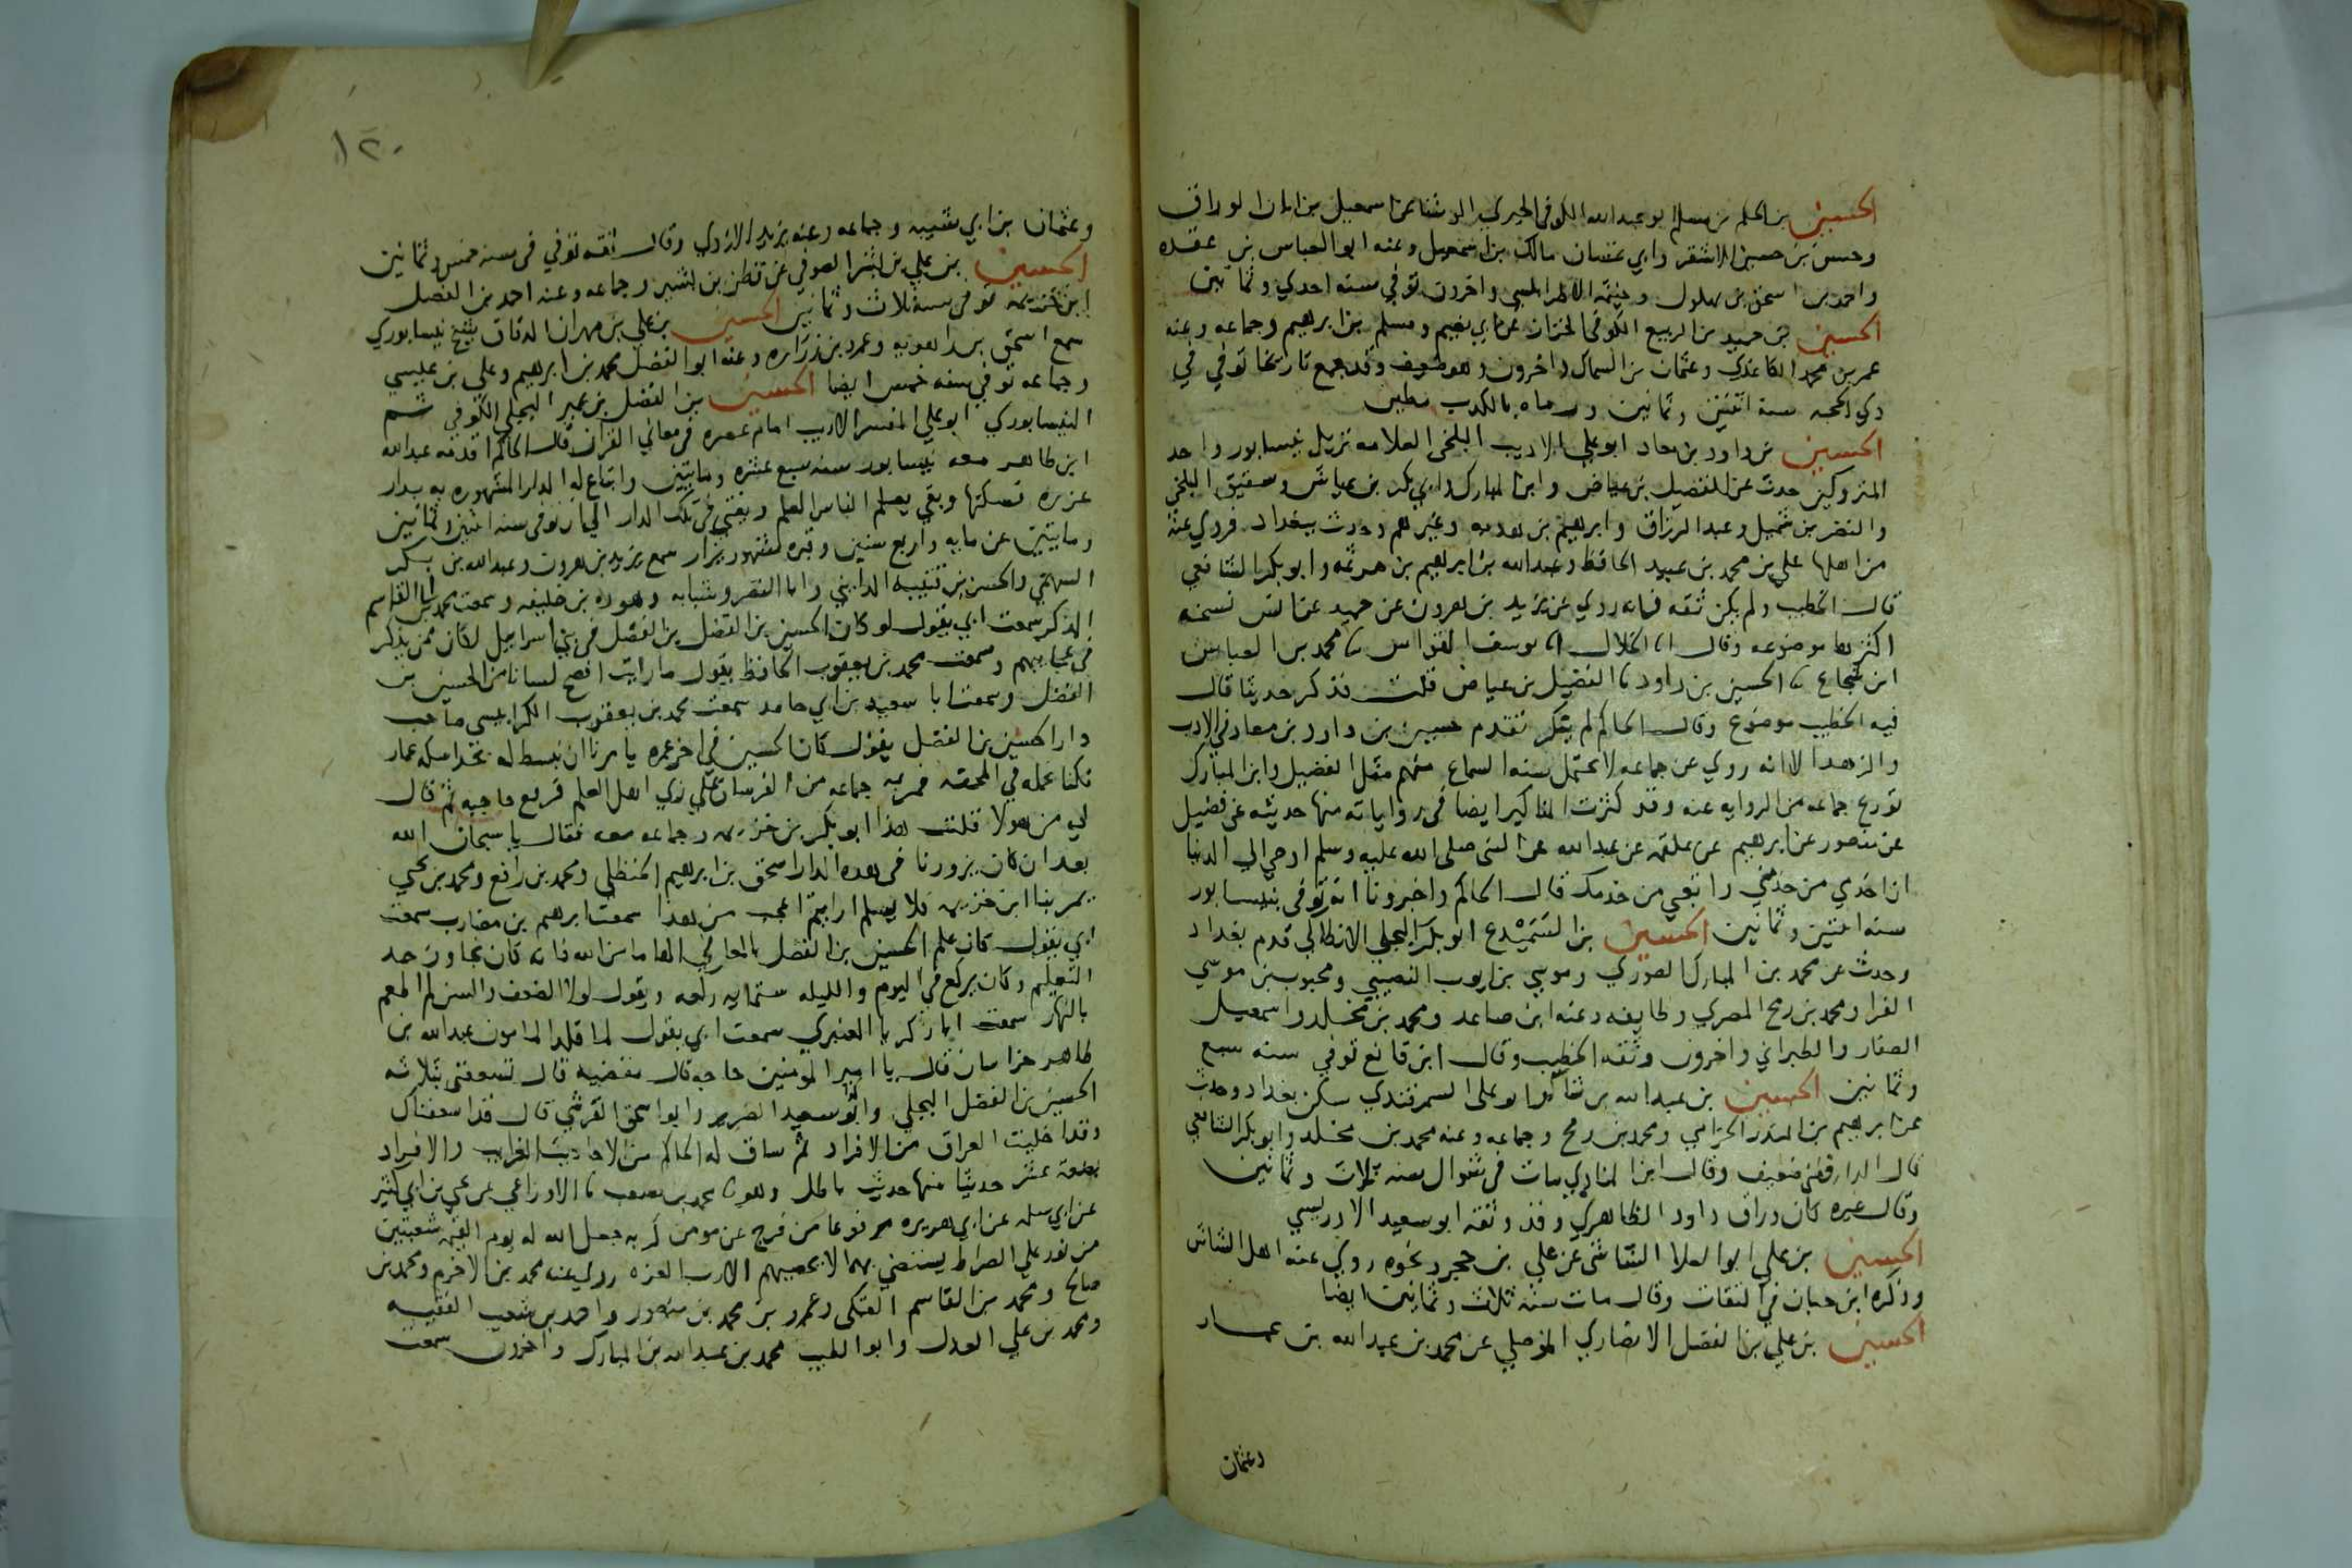 الحسين بن الحكم بن مسلم ابو عبد الله الكوفي الحبري الوشا عن اسمعيل بن ابان الوراق
وحسن بن حسين الاشقر وابي غسان مالك بن اسمعيل وعنه ابو العباس بن عقده
واحمد بن اسحق بن بهلول وخيثمه الاطرابلسي واخرون توفي سنه احدي وثمانين
الحسين بن حميد بن الربيع الكوفي الخزاز عن ابي نعيم ومسلم بن ابرهيم وجماعه وعنه
عمر بن محمد الكاغدي وعثمان بن السماك واخرون وهو ضعيف وقد جمع تاريخا توفي في
ذي الحجه سنة اثنتين وثمانين ورماه بالكذب مطين
الحسين بن داود بن معاذ ابو علي الاديب البلخي العلامه نزيل نيسابور واحد
المتروكين حدث عن الفضيل بن عياض وابن المبارك وابي بكر بن عياش وشقيق البلخي
والنضر بن شميل وعبد الرزاق وابرهيم بن هدبه وغيرهم وحدث ببغداد فروي عنه
من اهلها علي بن محمد بن عبيد الحافظ وعبد الله بن ابرهيم بن هرثمه وابو بكر الشافعي
قال الخطيب ولم يكن ثقه فانه روي عن يزيد بن هرون عن حميد عن انس نسخه
اكثرها موضوعه وقال انا الخلال انا يوسف القواس ثنا محمد بن العباس
ابن شجاع ثنا الحسين بن داود ثنا الفضيل بن عياض قلت فذكر حديثا قال
فيه الخطيب موضوع وقال الحاكم لم ينكر تقدم حسين بن داود بن معاذ في الادب
والزهد الا انه روي عن جماعه لا يحتمل سنه السماع منهم مثل الفضيل وابن المبارك
تورع جماعه من الروايه عنه وقد كثرت المناكير ايضا في رواياته منها حديثه عن فضيل
عن منصور عن ابرهيم عن علقمه عن عبد الله عن النبي صلى الله عليه وسلم اوحي الي الدنيا
ان اخدمي من خدمني واتعبي من خدمك قال الحاكم واخبرونا انه توفي بنيسابور
سنه اثنتين وثمانين الحسين بن السَّمَيْدع ابو بكر البجلي الانطاكي قدم بغداد
وحدث عن محمد بن المبارك الصوري وموسي بن ايوب النصيبي ومحبوب بن موسي
الفرا ومحمد بن رمح المصري وطايفه وعنه ابن صاعد ومحمد بن مخلد واسمعيل
الصفار والطبراني واخرون وثقه الخطيب وقال ابن قانع توفي سنه سبع
وثمانين الحسين بن عبد الله بن شاكر ابو علي السمرقندي سكن بغداد وحدث
عن ابرهيم بن المنذر الحزامي ومحمد بن رمح وجماعه وعنه محمد بن مخلد وابو بكر الشافعي
قال الدارقطني ضعيف وقال ابن المنادي مات في شوال سنه ثلاث وثمانين
وقال غيره كان وراق داود الظاهري وقد وثقه ابو سعيد الادريسي
الحسين بن علي ابو العلا الشاشي عن علي بن حجر ونحوه روي عنه اهل الشاش
وذكره ابن حبان في الثقات وقال مات سنه ثلاث وثمانين ايضا
الحسين بن علي بن الفضل الانصاري الموصلي عن محمد بن عبد الله بن عمار
وعثمان
١٢٠
وعثمان بن ابي شيبه وجماعه وعنه يزيد الازدي وقال ثقه توفي في سنه خمس وثمانين
الحسين بن علي بن بشر الصوفي عن قطن بن نسير وجماعه وعنه احمد بن الفضل
ابن خزيمه توفي سنه ثلاث وثمانين الحسين بن علي بن مهران الدقاق شيخ نيسابوري
سمع اسحق بن راهويه وعمرو بن زراره وعنه ابو الفضل محمد بن ابرهيم وعلي بن عيسي
وجماعه توفي سنه خمس ايضا الحسين بن الفضل بن عمير البجلي الكوفي ثم
النيسابوري ابو علي المفسر الاديب امام عصره في معاني القران قال الحاكم اقدمه عبد الله
ابن طاهر معه نيسابور سنه سبع عشره ومايتين وابتاع له الدار المشهوره به بدار
عزره فسكنها وبقي يعلم الناس العلم ويفتي في تلك الدار الي ان توفي سنه اثنتين وثمانين
ومايتين عن مايه واربع سنين وقبره مشهور يزار سمع يزيد بن هرون وعبد الله بن بكر
السهمي والحسن بن قتيبه المدايني وابا النضر وشبابه وهوذه بن خليفه وسمعت محمد بن ابا القاسم
المذكر سمعت ابي يقول لو كان الحسين بن الفضل بن الفضل في بني اسرايل لكان ممن يذكر
في عجايبهم وسمعت محمد بن يعقوب الحافظ يقول ما رايت افصح لسانا من الحسين بن
الفضل وسمعت ابا سعيد بن ابي حامد سمعت محمد بن يعقوب الكرابيسي صاحب
دار الحسين بن الفضل يقول كان الحسين في اخر عمره يامرنا ان نبسط له بحذا سكه عمار
فكنا نحمله في المحفه فمر به جماعه من الفرسان علي زي اهل العلم فرفع حاجبه ثم قال
لي من هولا قلت هذا ابو بكر بن خزيمه وجماعه معه فقال يا سبحان الله
بعد ان كان يزورنا في هذه الدار اسحق بن ابرهيم الحنظلي ومحمد بن رافع ومحمد بن يحيي
يمر بنا ابن خزيمه فلا يسلم ارايتم اعجب من هذا سمعت ابرهيم بن مضارب سمعت
ابي يقول كان علم الحسين بن الفضل بالمعاني الهاما من الله فانه كان تجاوز حد
التعليم وكان يركع في اليوم والليله ستمايه ركعه ويقول لولا الضعف والسن لم اطعم
بالنهار سمعت ابا زكريا العنبري سمعت ابي يقول لما قلد المامون عبد الله بن
طاهر خراسان قال يا امير المومنين حاجه قال مقضيه قال تسعفني بثلاثه
الحسين بن الفضل البجلي وابو سعيد الضرير وابو اسحق القرشي قال قد اسعفناك
وقد اخليت العراق من الافراد ثم ساق له الحاكم من الاحاديث الغرايب والافراد
بضعة عشر حديثا منها حديث باطل وهو ثنا محمد بن مصعب ثنا الاوزاعي عن يحيي بن ابي كثير
عن ابي سلمه عن ابي هريره مرفوعا من فرج عن مومن كربه جعل الله له يوم القيمه شعبتين
من نور علي الصراط يستضي بهما لا يحصيهم الا رب العزه روي عنه محمد بن الاخرم ومحمد بن
صالح ومحمد بن القاسم العتكي وعمرو بن محمد بن منصور واحمد بن شعيب الفقيه
ومحمد بن علي العدل وابو الطيب محمد بن عبد الله بن المبارك واخرون سمعت